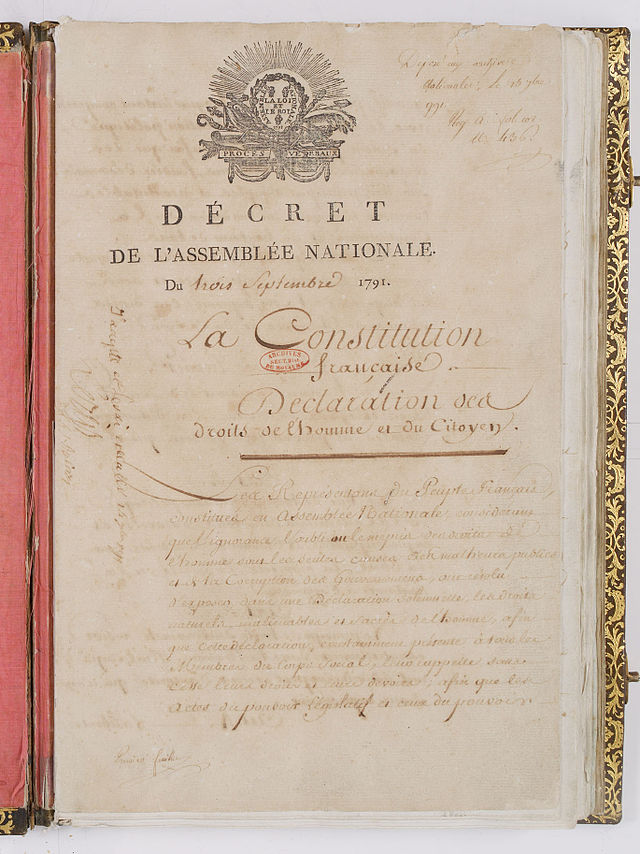 LA LOI
ET
LE ROI
PROCÈS VERBAUX
Déposé aux archives
Nationales, le
1791
DÉCRET
DE L'ASSEMBLÉE NATIONALE.
Du trois Septembre 1791.
La Constitution
ARCHIVES
DU ROYAUME
française.
Déclaration des
droits de l'homme et du Citoyen.
Les Représentans du Peuple Français,
constitués en Assemblée Nationale, considérant
que l'ignorance, l'oubli ou le mépris des droits de
l'homme sont les seules causes des malheurs publics
et de la Corruption des Gouvernemens, ont résolu
d'exposer, dans une Déclaration solemnelle, les droits
naturels, inaliénables et sacrés de l'homme, afin
que cette déclaration, constamment présente à tous les
Membres du corps Social, leur rappelle sans
cesse leurs droits et leurs devoirs; afin que les
actes du pouvoir législatif et ceux du pouvoir
J'accepte et ferai exécuter